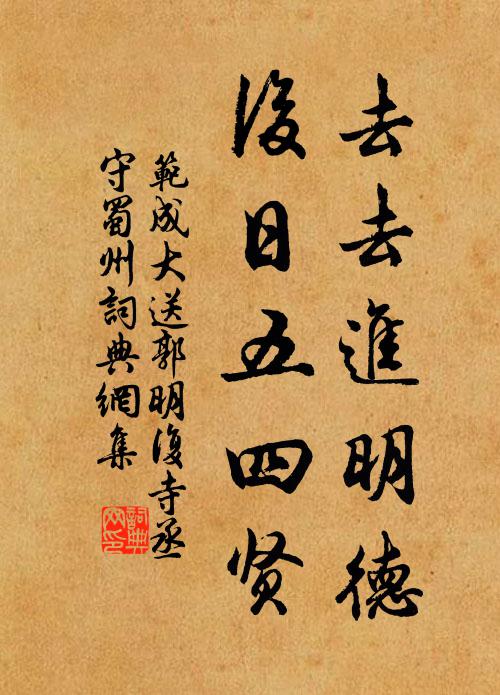 去去進明德
後日五四贤
範成大送郭明復寺丞
守蜀州詞典網集
詞典